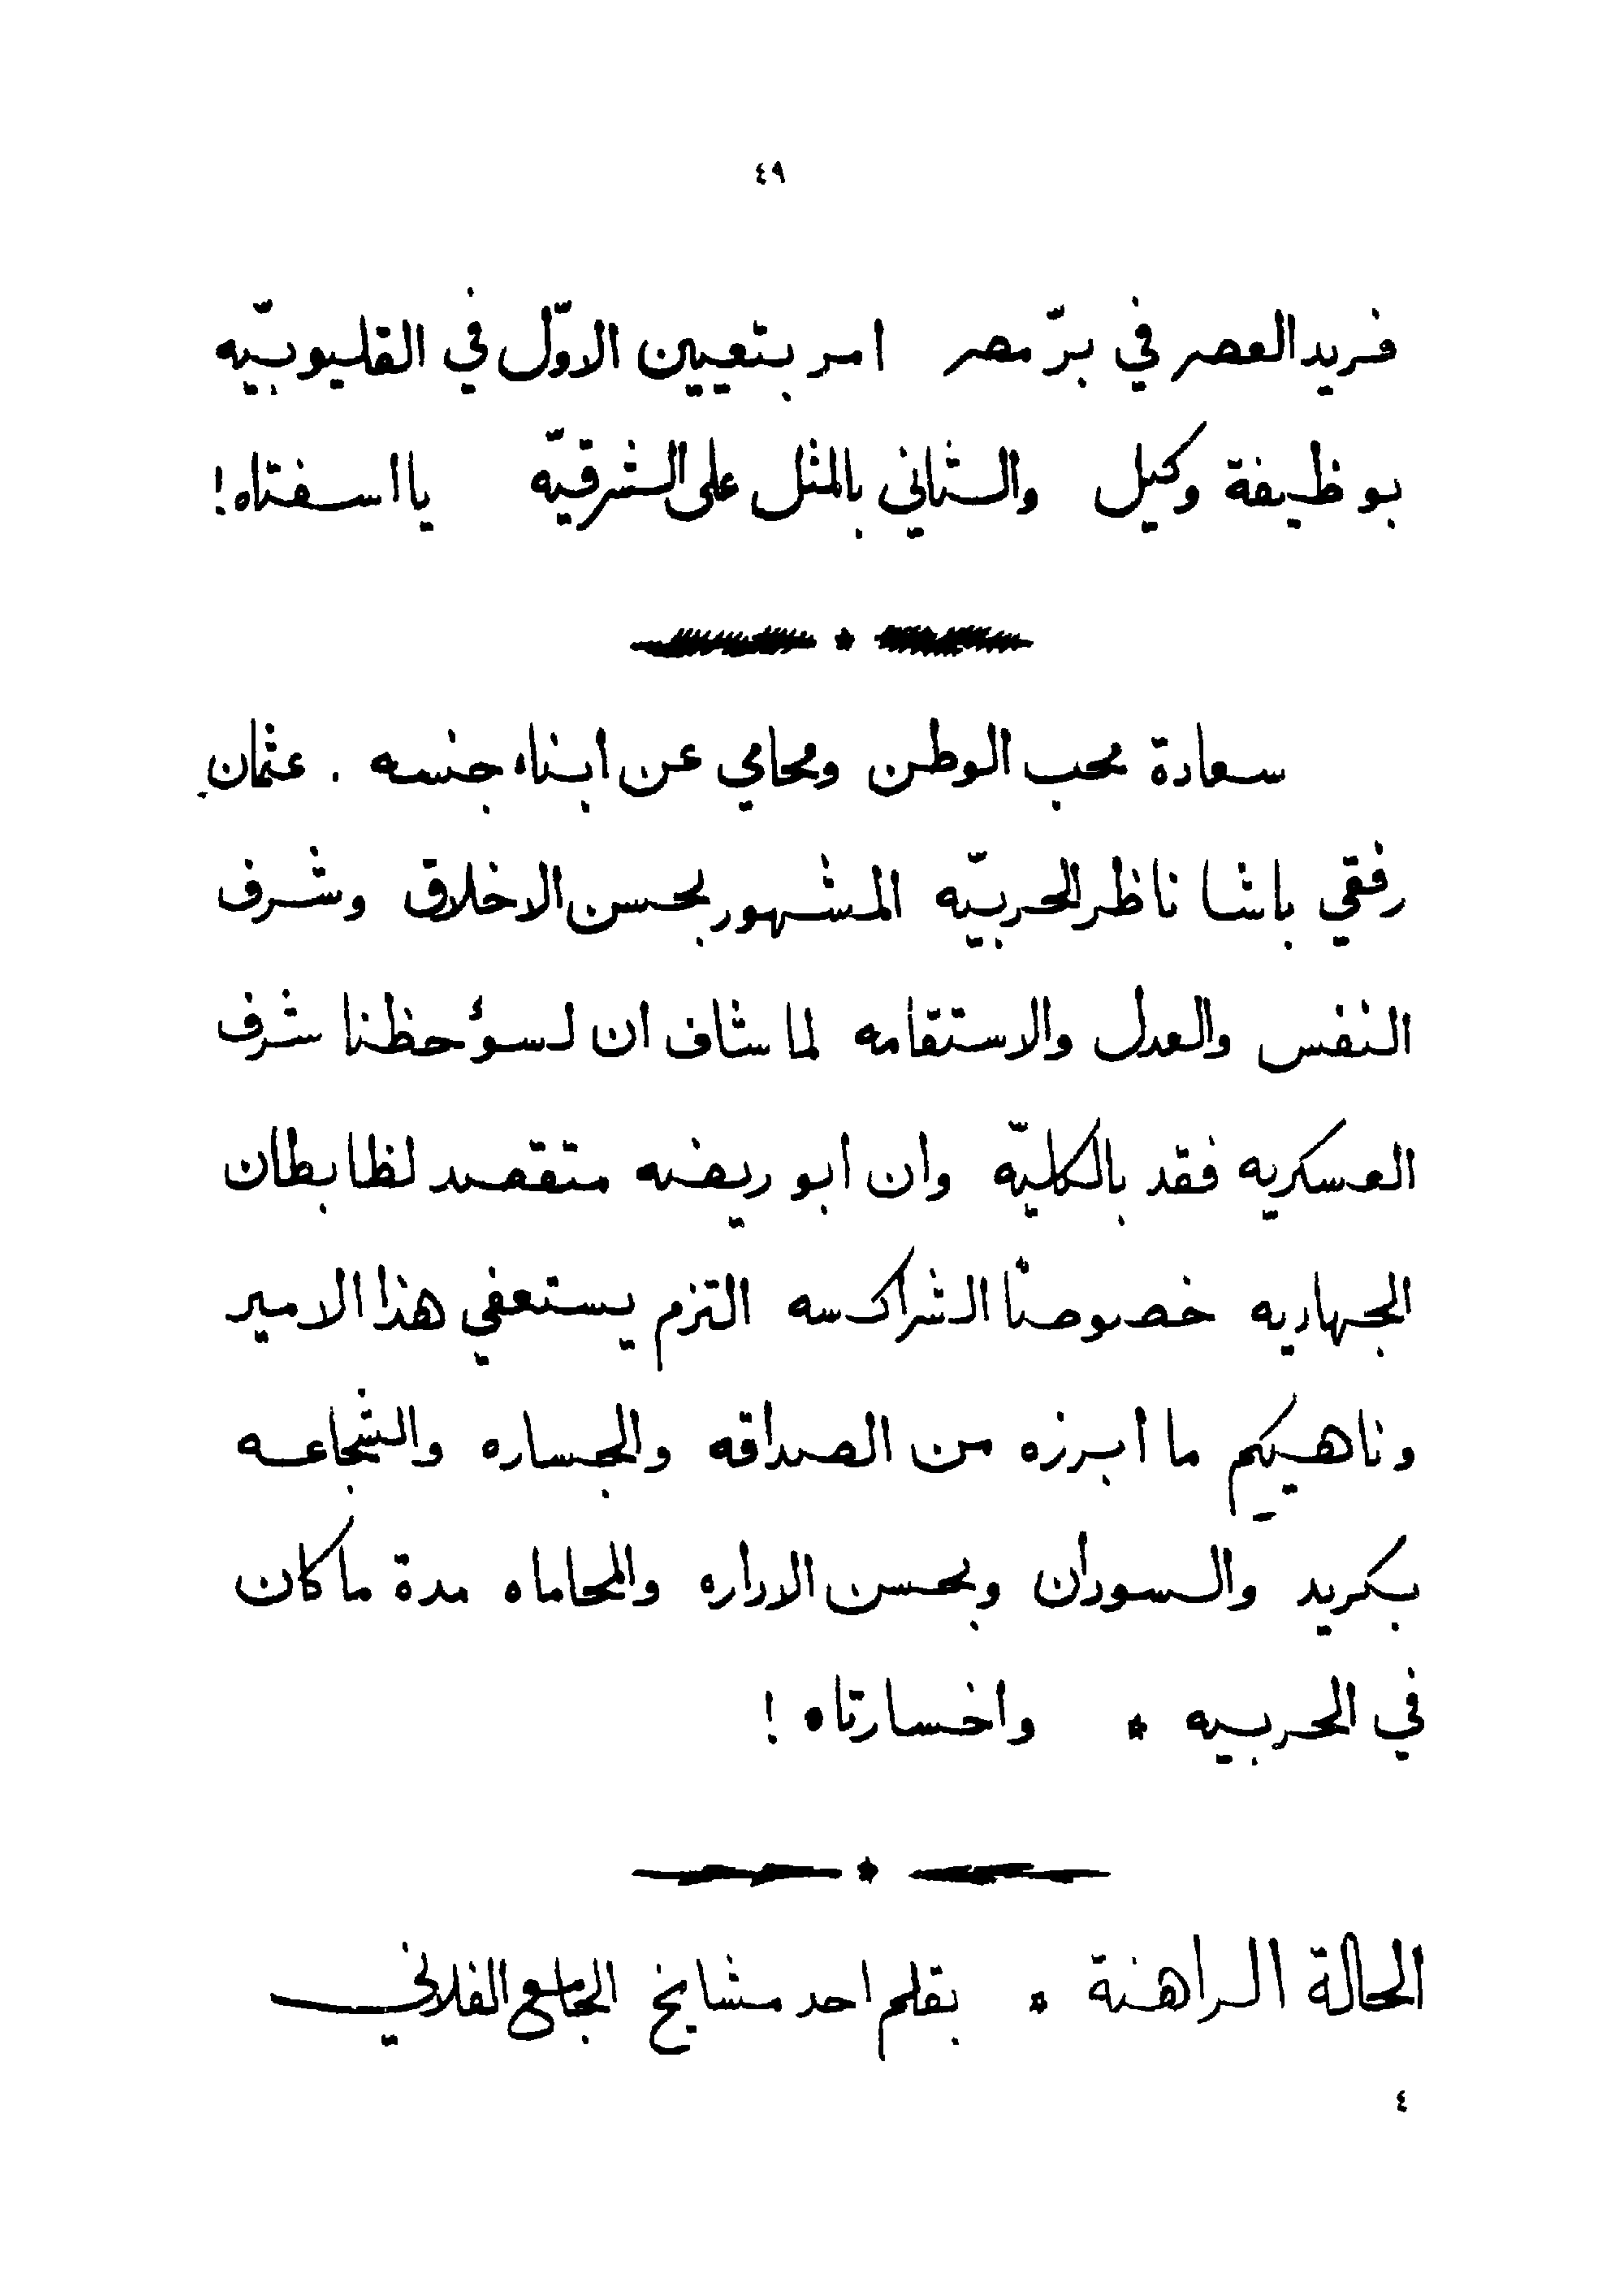 ٤٩
فريد العصر في برّ مصر امر بتعيين الاوّل في القليوبيّه
بوظيفة وكيل والثاني بالمثل على الشرقيّه يا اسفتاه!
سعادة محب الوطن ومحامي عن ابناء جنسه . عثمان
رفقي باشا ناظر الحربيّه المشهور بحسن الاخلاق وشرف
النفس والعدل والاستقامه لما شاف ان لسوٴ حظنا شرف
العسكريه فقد بالكليّه وان ابو ريضه متقصد لظابطان
الجهاديه خصوصًا الشراكسه التزم يستعفي هذا الامير
وناهيكم ما ابرزه من الصداقه والجساره والشجاعه
بكريد والسودان وبحسن الاداره والمحاماه مدة ما كان
في الحربيه * واخسارتاه !
الحالة الراهنة * بقلم احد مشايخ الجامع الفلاني
٤